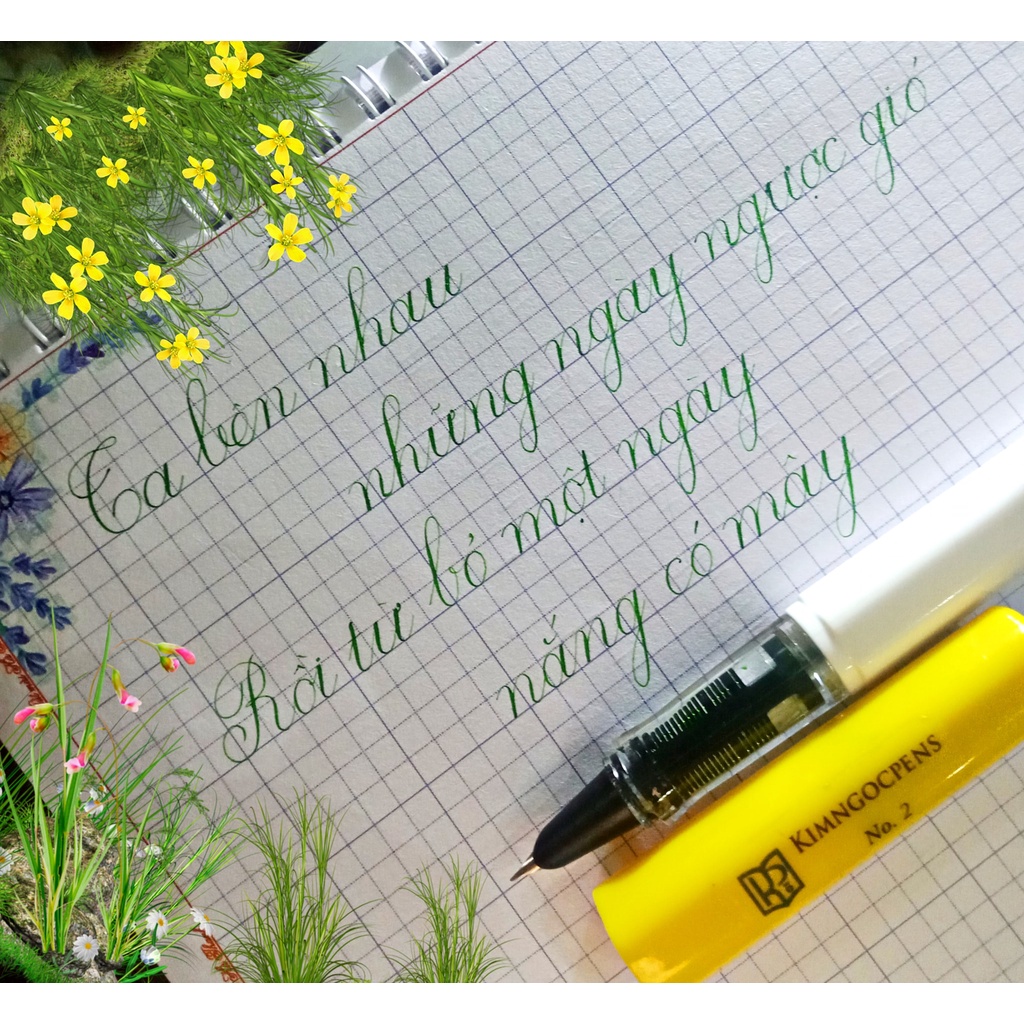 Ta bên nhau
những ngày ngược gió
Rồi từ bỏ một ngày
nắng có mây
KIMNGOCPENS
No. 2